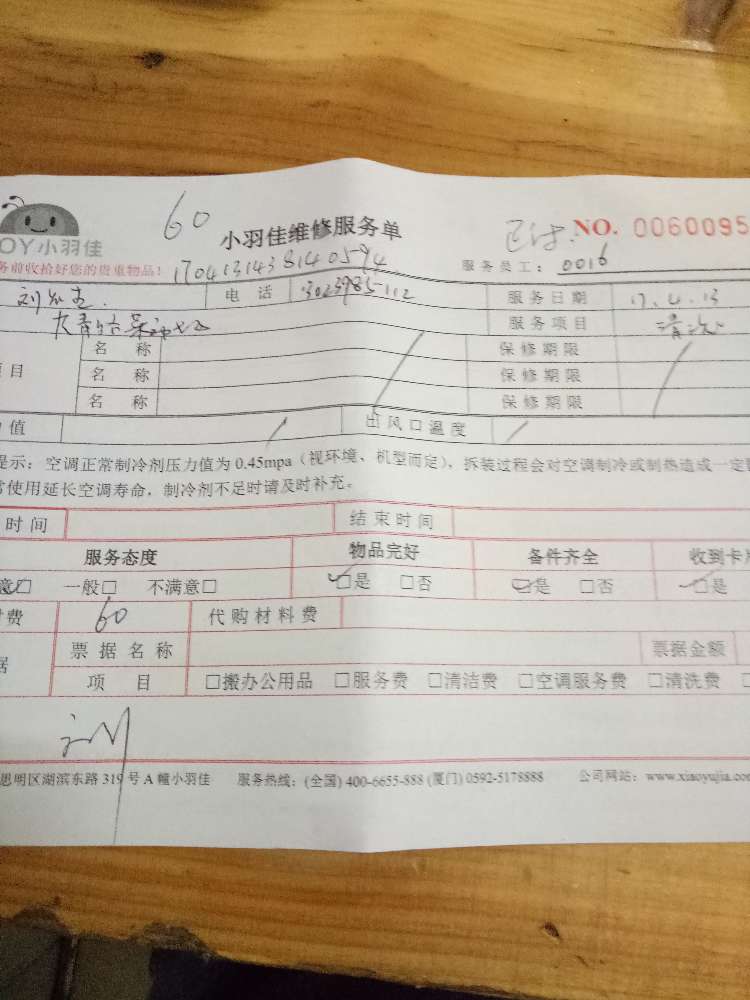 60
小羽佳维修服务单
NO. 0060095
OY小羽佳
务前收拾好您的贵重物品!
服务员工: 0016
电话
服务日期 17.4.13
服务项目 清洗
名称 保修期限
目 名称 保修期限
名称 保修期限
值 出风口温度
提示: 空调正常制冷剂压力值为0.45mpa (视环境、机型而定), 拆装过程会对空调制冷或制热造成一定
常使用延长空调寿命, 制冷剂不足时请及时补充。
时间 结束时间
服务态度 物品完好 备件齐全 收到卡
意□ 一般□ 不满意□ □是 □否 □是 □否 □是
费 60 代购材料费
据 票据名称 票据金额
项目 □搬办公用品 □服务费 □清洁费 □空调服务费 □清洗费
思明区湖滨东路319号A幢小羽佳 服务热线: (全国) 400-6655-888 (厦门) 0592-5178888 公司网站: www.xiaoyujia.co